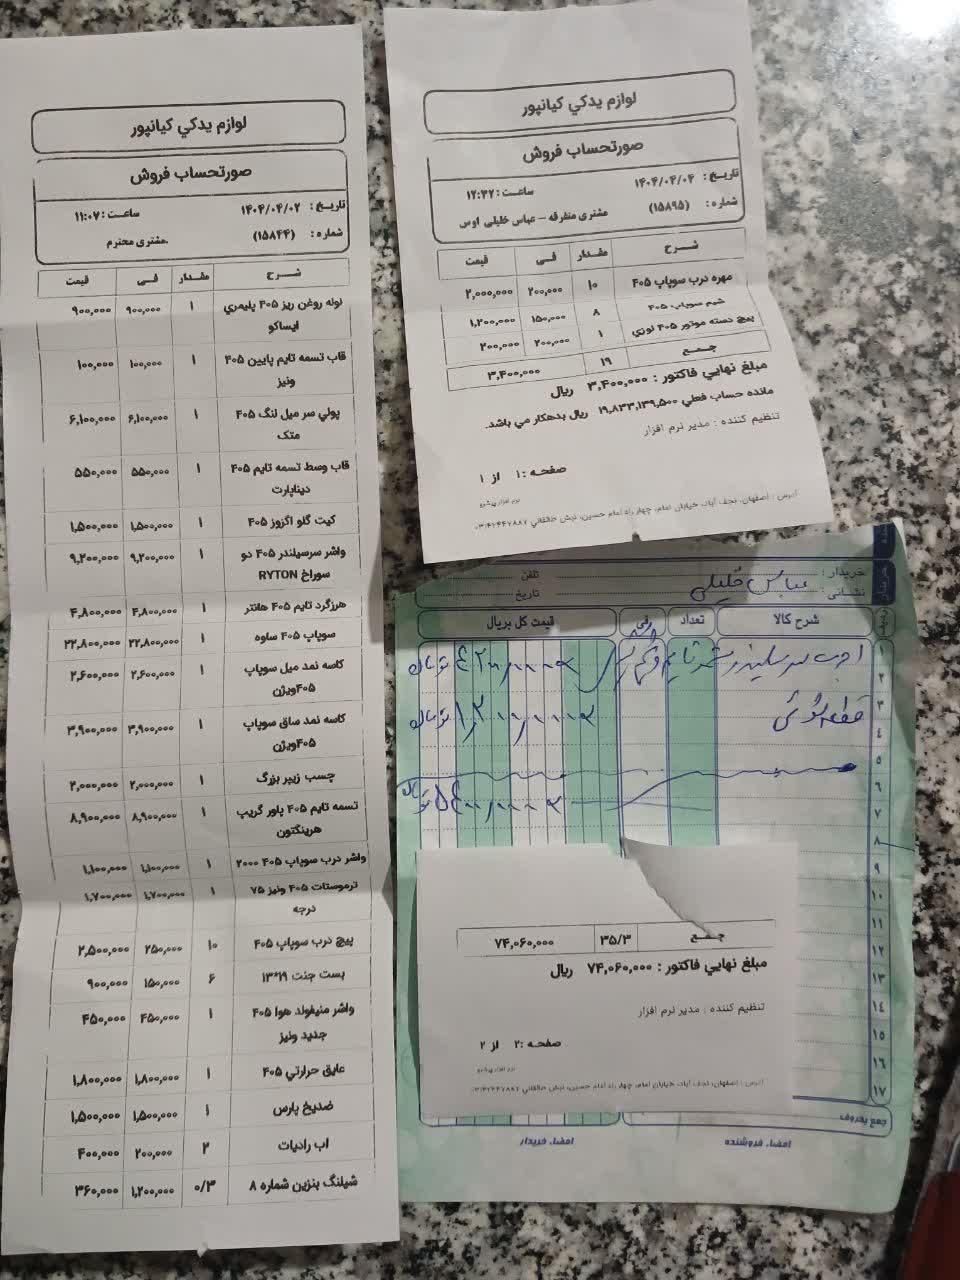 لوازم يدكي كيانپور
صورتحساب فروش
تاريخ : ۱۴۰۴/۰۴/۰۲ ساعت : ۱۱:۰۷
شماره : (۱۵۸۴۴) مشتری محترم.
شرح مقدار فی قیمت
لوله روغن ريز ۴۰۵ پليمري ايساكو ۱ ۹۰۰,۰۰۰ ۹۰۰,۰۰۰
قاب تسمه تايم پايين ۴۰۵ ونيز ۱ ۱۰۰,۰۰۰ ۱۰۰,۰۰۰
پولي سر ميل لنگ ۴۰۵ متك ۱ ۶,۱۰۰,۰۰۰ ۶,۱۰۰,۰۰۰
قاب وسط تسمه تايم ۴۰۵ ديناپارت ۱ ۵۵۰,۰۰۰ ۵۵۰,۰۰۰
كيت گلو اگزوز ۴۰۵ ۱ ۱,۵۰۰,۰۰۰ ۱,۵۰۰,۰۰۰
واشر سرسيلندر ۴۰۵ دو سوراخ RYTON ۱ ۹,۲۰۰,۰۰۰ ۹,۲۰۰,۰۰۰
هرزگرد تايم ۴۰۵ هانتر ۱ ۴,۸۰۰,۰۰۰ ۴,۸۰۰,۰۰۰
سوپاپ ۴۰۵ ساوه ۱ ۲۲,۸۰۰,۰۰۰ ۲۲,۸۰۰,۰۰۰
كاسه نمد ميل سوپاپ ۴۰۵ويژن ۱ ۲,۶۰۰,۰۰۰ ۲,۶۰۰,۰۰۰
كاسه نمد ساق سوپاپ ۴۰۵ويژن ۱ ۳,۹۰۰,۰۰۰ ۳,۹۰۰,۰۰۰
چسب زيپر بزرگ ۱ ۲,۰۰۰,۰۰۰ ۲,۰۰۰,۰۰۰
تسمه تايم ۴۰۵ پاور گريپ هرينگتون ۱ ۸,۹۰۰,۰۰۰ ۸,۹۰۰,۰۰۰
واشر درب سوپاپ ۴۰۵ ۲۰۰۰ ۱ ۱,۱۰۰,۰۰۰ ۱,۱۰۰,۰۰۰
ترموستات ۴۰۵ ونيز ۷۵ درجه ۱ ۱,۷۰۰,۰۰۰ ۱,۷۰۰,۰۰۰
پيچ درب سوپاپ ۴۰۵ ۱۰ ۲۵۰,۰۰۰ ۲,۵۰۰,۰۰۰
بست جنت ۱۹*۱۳ ۶ ۱۵۰,۰۰۰ ۹۰۰,۰۰۰
واشر منيفولد هوا ۴۰۵ جديد ونيز ۱ ۴۵۰,۰۰۰ ۴۵۰,۰۰۰
عايق حرارتي ۴۰۵ ۱ ۱,۸۰۰,۰۰۰ ۱,۸۰۰,۰۰۰
ضديخ پارس ۱ ۱,۵۰۰,۰۰۰ ۱,۵۰۰,۰۰۰
اب راديات ۲ ۲۰۰,۰۰۰ ۴۰۰,۰۰۰
شيلنگ بنزين شماره ۸ ۰/۳ ۱,۲۰۰,۰۰۰ ۳۶۰,۰۰۰
لوازم يدكي كيانپور
صورتحساب فروش
تاريخ : ۱۴۰۴/۰۴/۰۴ ساعت : ۱۲:۳۲
شماره : (۱۵۸۹۵) مشتری متفرقه - عباس خلیلی اوس
شرح مقدار فی قیمت
مهره درب سوپاپ ۴۰۵ ۱۰ ۲۰۰,۰۰۰ ۲,۰۰۰,۰۰۰
شيم سوپاپ ۴۰۵ ۸ ۱۵۰,۰۰۰ ۱,۲۰۰,۰۰۰
پيچ دسته موتور ۴۰۵ لوزي ۱ ۲۰۰,۰۰۰ ۲۰۰,۰۰۰
جمع ۱۹ ۳,۴۰۰,۰۰۰
مبلغ نهايي فاكتور : ۳,۴۰۰,۰۰۰ ريال
مانده حساب فعلي ۱۹,۸۳۳,۱۳۹,۵۰۰ ريال بدهكار مي باشد.
تنظيم كننده : مدير نرم افزار
صفحه :۱ از ۱
نرم افزار پیشرو
آدرس : اصفهان، نجف آباد، خيابان امام، چهار راه امام حسين، نبش خالقاني ۰۳۱۴۲۴۴۷۸۸۲
خریدار : عباس خلیلی تلفن
نشانی : تاریخ
ردیف شرح کالا تعداد فی قیمت کل بریال
۱
۲
۳
۴
۵
۶
۷
۸
۹
۱۰
۱۱
۱۲
۱۳
۱۴
۱۵
۱۶
۱۷
جمع ۳۵/۳ ۷۴,۰۶۰,۰۰۰
مبلغ نهايي فاكتور : ۷۴,۰۶۰,۰۰۰ ريال
تنظيم كننده : مدير نرم افزار
صفحه :۲ از ۲
نرم افزار پیشرو
آدرس : اصفهان، نجف آباد، خيابان امام، چهار راه امام حسين، نبش خالقاني ۰۳۱۴۲۴۴۷۸۸۲
جمع بحروف
امضاء فروشنده امضاء خریدار